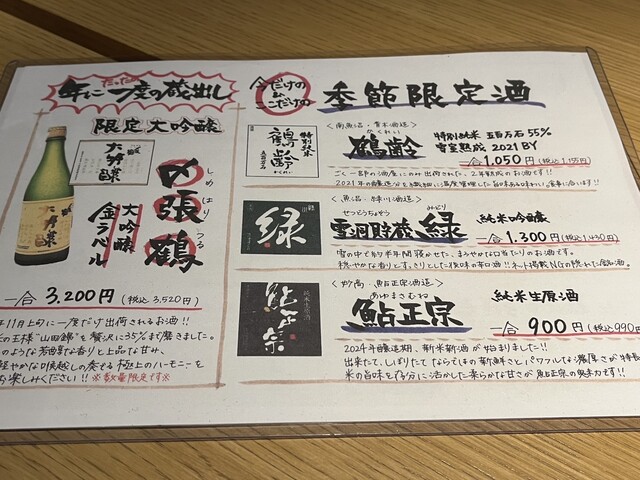 年にたった一度の蔵出し
限定大吟醸
大吟醸
〆張鶴
しめ はり つる
大吟醸
金ラベル
一合 3,200円 (税込 3,520円)
年11月上旬に一度だけ出荷されるお酒!!
の王様"山田錦"を贅沢に35%まで磨きました。
のような芳醇な香りと上品な甘み、
軽やかな喉越しの奏でる極上のハーモニーを
お楽しみください!! ※数量限定です※
今だけの
ここだけの
季節限定酒
特別純米
鶴齢
<南魚沼・青木酒造>
かくれい
鶴齢
特別純米 五百万石 55%
雪室熟成 2021BY
一合 1,050円 (税込 1,155円)
ごく一部の酒屋にのみ出荷された、2年熟成のお酒です!!
緑
<魚沼・緑川酒造>
せつどうちょぞう みどり
雪洞貯蔵 緑
純米吟醸
一合 1,300円 (税込 1,430円)
雪の中で約半年間寝かせた、まろやかな口当たりのお酒です。
穏やかな香りとすっきりとした後味の辛口酒!! ネット掲載NGの隠れた銘酒。
鮎正宗
<妙高・鮎正宗酒造>
あゆまさむね
鮎正宗
純米生原酒
一合 900円 (税込 990円
2024年醸造期、新米新酒が始まりました!!
出来たて、しぼりたてならではの新鮮さとパワフルな濃厚さが特長
米の旨味を存分に活かした柔らかな甘さが鮎正宗の魅力です!!